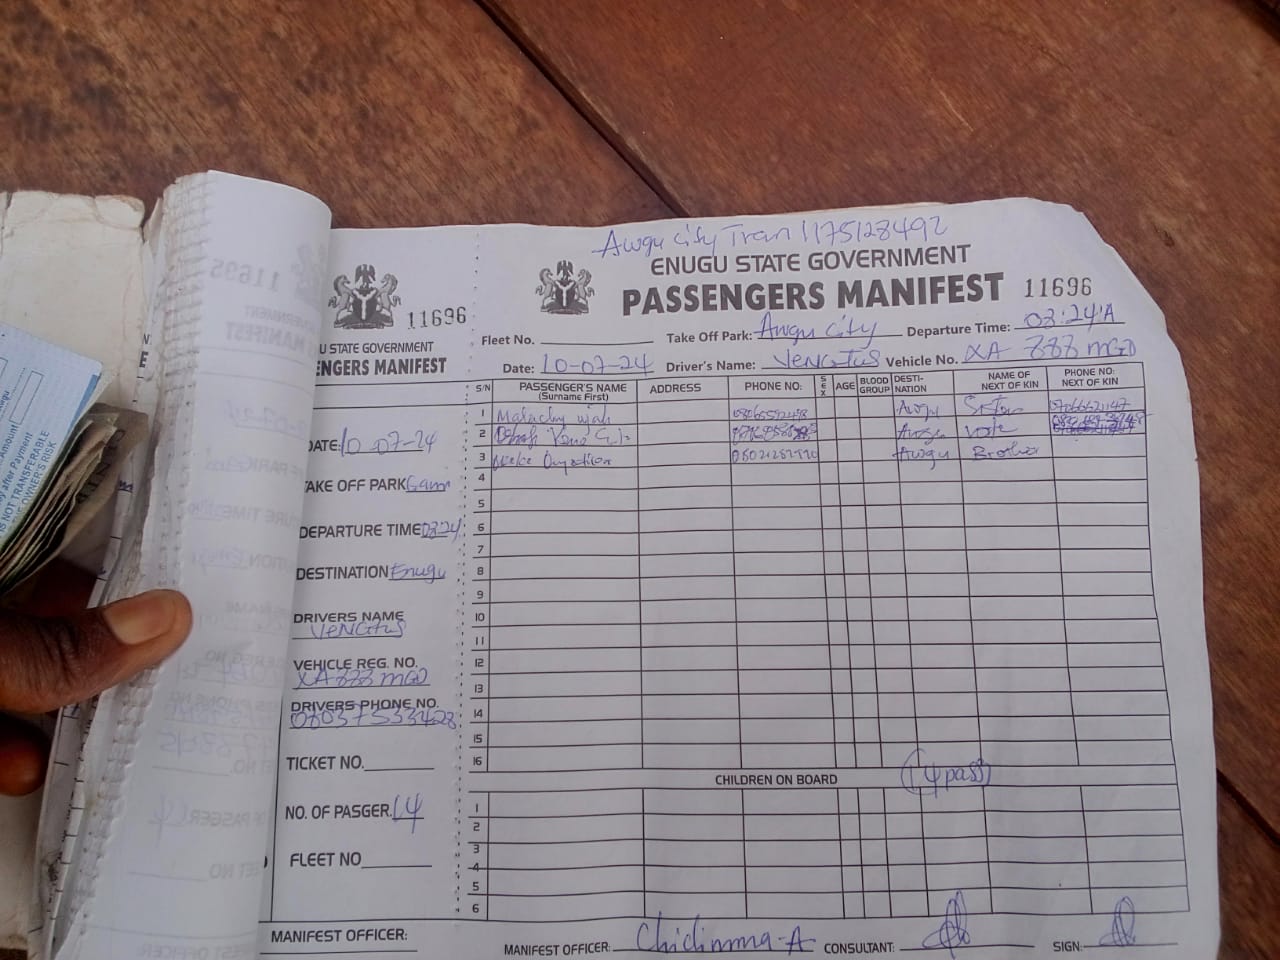 Awgu City Tran 1175128492
ENUGU STATE GOVERNMENT
PASSENGERS MANIFEST 11696
Fleet No. Take Off Park: Awgu City Departure Time: 03:24 A
Date: 10-07-24 Driver's Name: VENATUS Vehicle No. XA 888 MGD
S/N PASSENGER'S NAME (Surname First) ADDRESS PHONE NO: SEX AGE BLOOD GROUP DESTI-NATION NAME OF NEXT OF KIN PHONE NO: NEXT OF KIN
1 Malachy Awgu Sister 07066621147
2 Awgu
3 Awgu Brother
4
5
6
7
8
9
10
11
12
13
14
15
16
CHILDREN ON BOARD (14 pass)
1
2
3
4
5
6
MANIFEST OFFICER: Chidimma-A CONSULTANT: SIGN:
11696
U STATE GOVERNMENT
ENGERS MANIFEST
DATE: 10-07-24
TAKE OFF PARK
DEPARTURE TIME 03:24
DESTINATION Enugu
DRIVERS NAME
VENATUS
VEHICLE REG. NO.
XA 888 MGD
DRIVERS PHONE NO.
08037533428
TICKET NO.
NO. OF PASGER. 14
FLEET NO
MANIFEST OFFICER:
Amount
y after Payment
IS NOT TRANSFERABLE
OWNER'S RISK